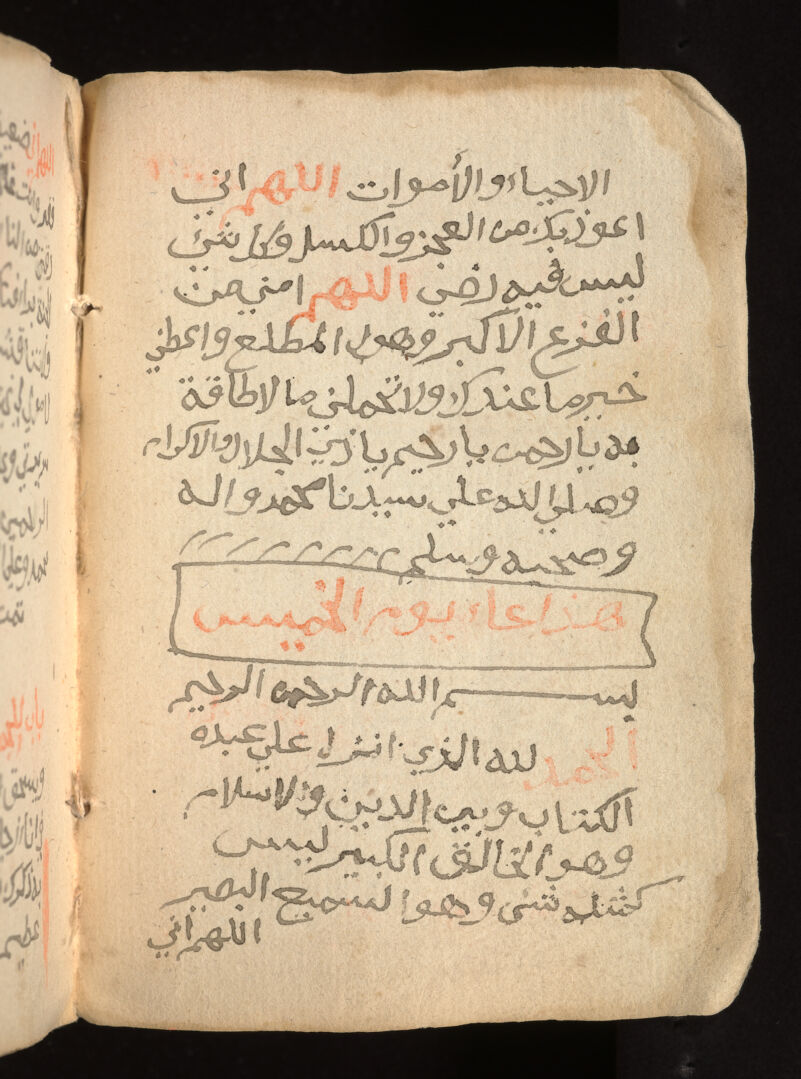 الاحياء والأموات اللهم اني
اعوذ بك من العجز والكسل وكل شئ
ليس فيه رضي اللهم امني من
الفزع الاكبر وهول المطلع واعطني
خير ما عندك ولا تحملني ما لا طاقة
به يا رحمن يا رحيم يا ذي الجلال والاكرام
وصلي الله علي سيدنا محمد واله
وصحبه وسلم
هذا دعاء يوم الخميس
بسم الله الرحمن الرحيم
الحمد لله الذي انزل علي عبده
الكتاب وبين الدين والاسلام
وهو الخالق الكبير ليس
كمثله شئ وهو السميع البصير
اللهم اني